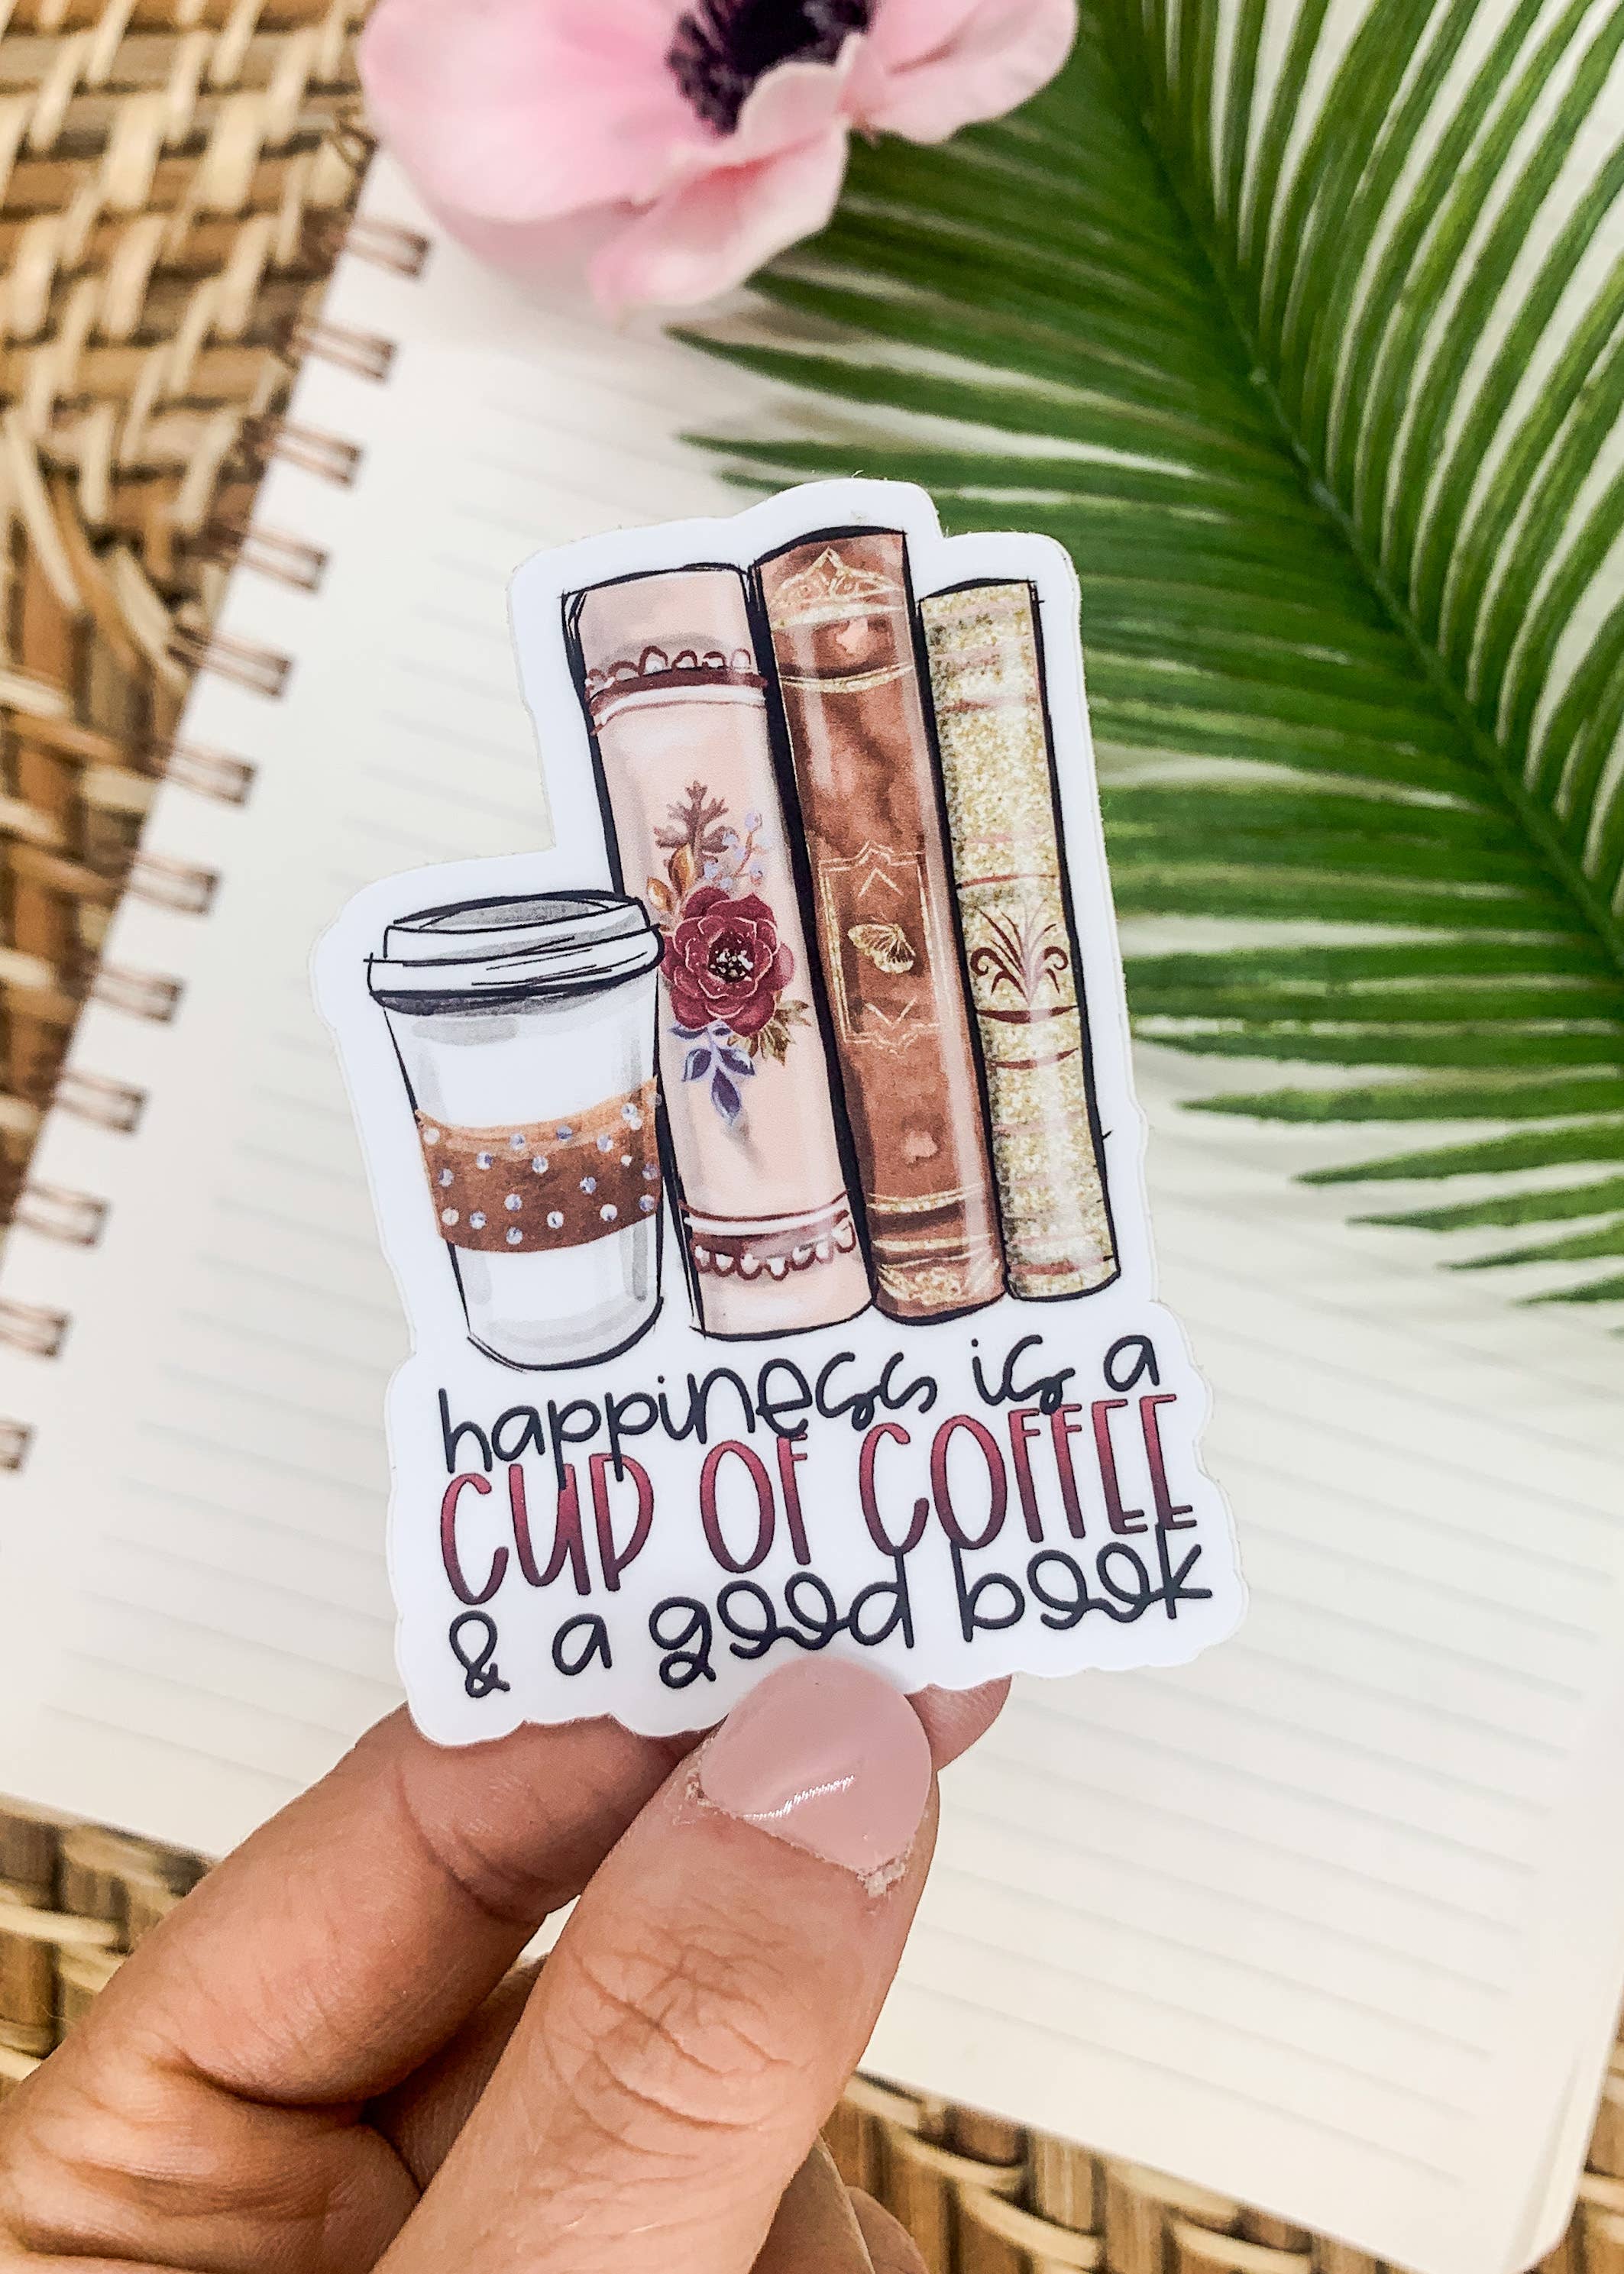 happiness is a
CUP OF COFFEE
& a good book